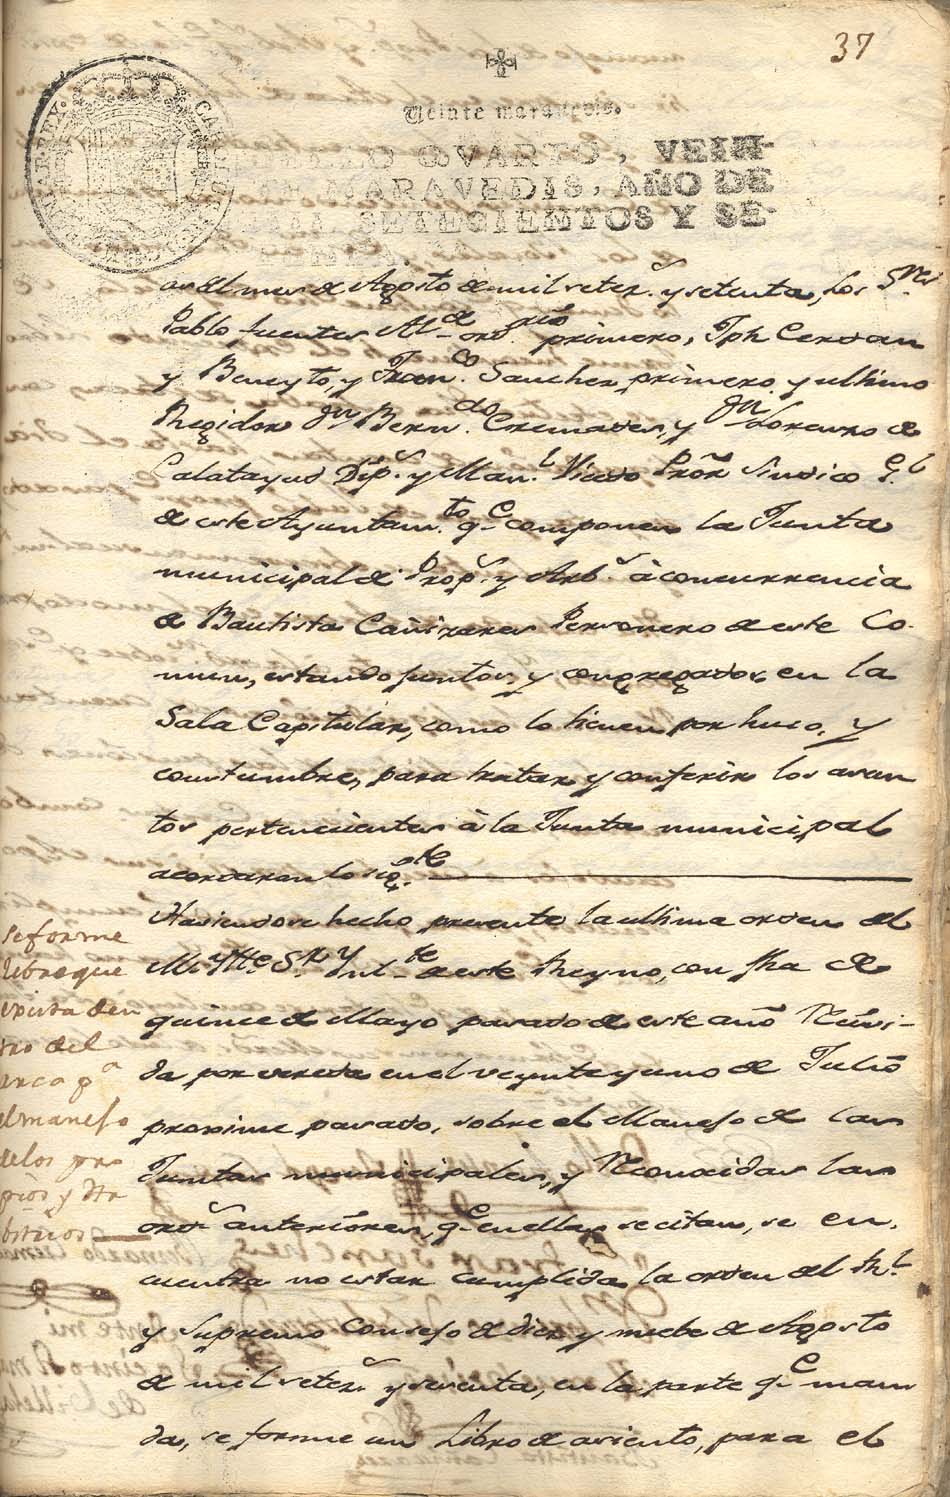 37
Veinte maravedis.
SELLO QVARTO, VEIN-
TE MARAVEDIS, AÑO DE
MIL SETECIENTOS Y SE-
TENTA.
del mes de Agosto de mil setec.s y setenta, los S.res
Pablo fuentes Al.de ord.rio primero, Jph Cerdan
y Beneyto, y Fran.co Sanchez, primero y ultimo
Regidor, D.n Bern.do Cremades, y D.n Lorenzo de
Calatayud Dip.s y Man.l Picado Pror Sindico G.l
de este Ayuntam.to q.e componen la Junta
municipal de Prop.s y Arb.s à concurrencia
de Bautista Cañizares Personero de este Co-
mun, estando juntos, y congregados, en la
Sala Capitular, como lo tienen por huso, y
costumbre, para tratar y conferir los asun
tos pertenecientes à la Junta municipal
acordaron lo sig.te
Haviendose hecho presente la ultima orden del
M. Ytte. S.r Int.te de este Reyno, con fha de
quince de Mayo pasado de este año Reciví-
da por vereda en el veynte y uno de Julio
proximo pasado, sobre el Manejo de las
Juntas municipales, y Reconocidas las
ord.s anteriores, q.e en ellas se citan, se en-
cuentra no estar cumplida la orden del Rl.
y Supremo Consejo de diez y nuebe de Agosto
de mil setec.s y sesenta, en la parte q.e man
da, se forme un Libro de asiento, para el
Se forme
Libro que
exista den
tro del
Arca p.a
el manejo
de los pro
pios y Ar
bitrios